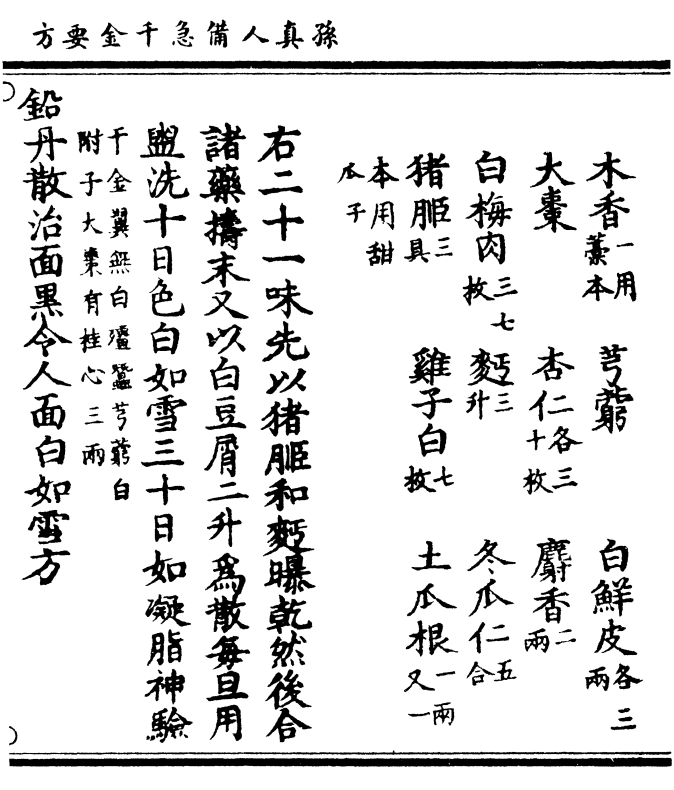 孫真人備急千金要方
木香一用藁本 芎藭 白鮮皮各三兩
大棗 杏仁各三十枚 麝香二兩
白梅肉三七枚 麫三升 冬瓜仁五合
猪胰三具 雞子白七枚 土瓜根一兩又一
本用甜瓜子
右二十一味先以猪胰和麫曝乾然後合
諸藥擣末又以白豆屑二升爲散每旦用
盥洗十日色白如雪三十日如凝脂神驗
千金翼無白殭蠶芎藭白
附子大棗有桂心三兩
鈆丹散治面黑令人面白如雪方